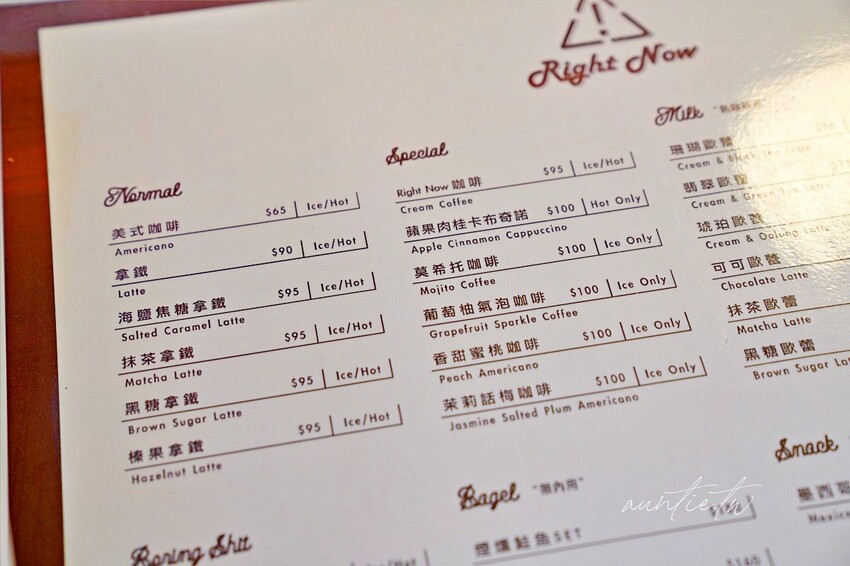 Right Now
Normal
美式咖啡 $65 Ice/Hot
Americano
拿鐵 $90 Ice/Hot
Latte
海鹽焦糖拿鐵 $95 Ice/Hot
Salted Caramel Latte
抹茶拿鐵 $95 Ice/Hot
Matcha Latte
黑糖拿鐵 $95 Ice/Hot
Brown Sugar Latte
榛果拿鐵 $95 Ice/Hot
Hazelnut Latte
Boring Shit
Special
Right Now 咖啡 $95 Ice/Hot
Cream Coffee
蘋果肉桂卡布奇諾 $100 Hot Only
Apple Cinnamon Cappuccino
莫希托咖啡 $100 Ice Only
Mojito Coffee
葡萄柚氣泡咖啡 $100 Ice Only
Grapefruit Sparkle Coffee
香甜蜜桃咖啡 $100 Ice Only
Peach Americano
茉莉話梅咖啡 $100 Ice Only
Jasmine Salted Plum Americano
Bagel "限內用"
煙燻鮭魚SET
$160
Milk
珊瑚歐蕾
Cream & Black Tea Latte
翡翠歐蕾
Cream & Green Tea Latte
琥珀歐蕾
Cream & Oolong Latte
可可歐蕾
Chocolate Latte
抹茶歐蕾
Matcha Latte
黑糖歐蕾
Brown Sugar
Snack
墨西哥
auntie.tw